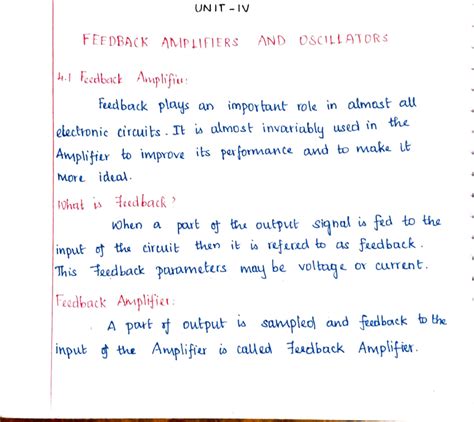 UNIT - IV
FEEDBACK AMPLIFIERS AND OSCILLATORS
4.1 Feedback Amplifier:
Feedback plays an important role in almost all
electronic circuits. It is almost invariably used in the
Amplifier to improve its performance and to make it
more ideal.
What is Feedback?
When a part of the output signal is fed to the
input of the circuit then it is refered to as feedback.
This Feedback parameters may be voltage or current.
Feedback Amplifier:
A part of output is sampled and feedback to the
input of the Amplifier is called Feedback Amplifier.